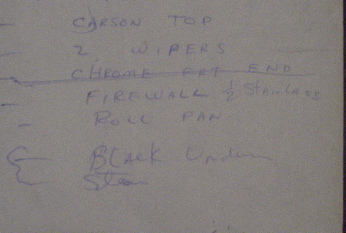 - CARSON TOP
- 2 WIPERS
CHROME FRT END
- FIREWALL ½ STAINLESS
- ROLL PAN
BLACK Under